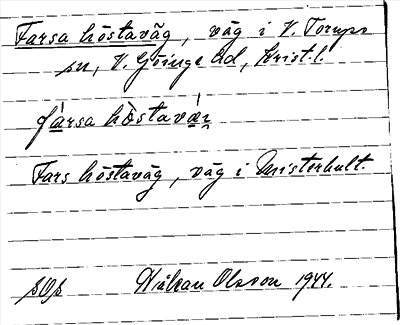 Farsa höstaväg, väg i V. Torups
sn, V. Göinge hd, Krist. l.
fàrsa hö̀stavä́ı̯
Fars höstaväg, väg i Misterhult.
Håkan Olsson 1944.